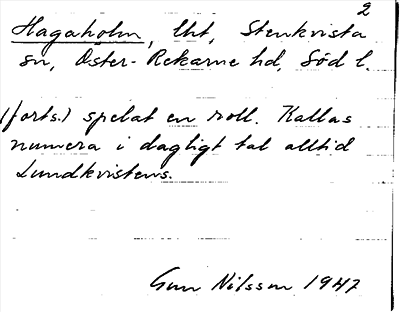 2
Hagaholm, lht, Stenkvista
sn, Öster-Rekarne hd, Söd l.
(forts.) spelat en roll. Kallas
numera i dagligt tal alltid
Lundkvistens.
Gun Nilsson 1947